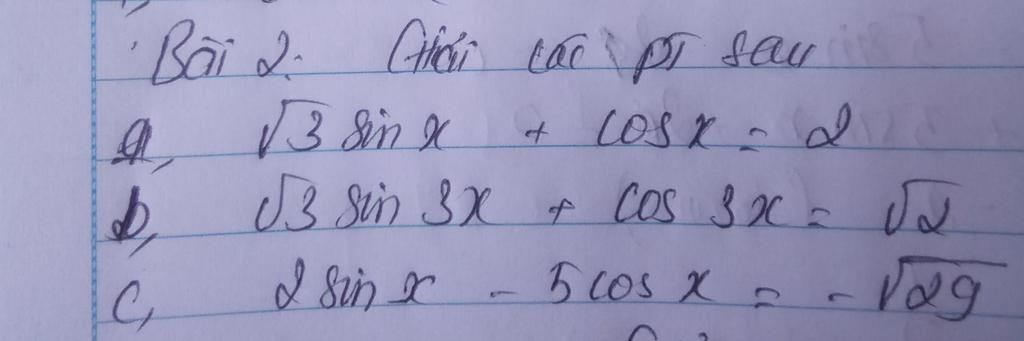 Bài 2: Giải các pt sau
a, √3 sin x + cos x = 2
b, √3 sin 3x + cos 3x = √2
c, 2 sin x - 5 cos x = - √29